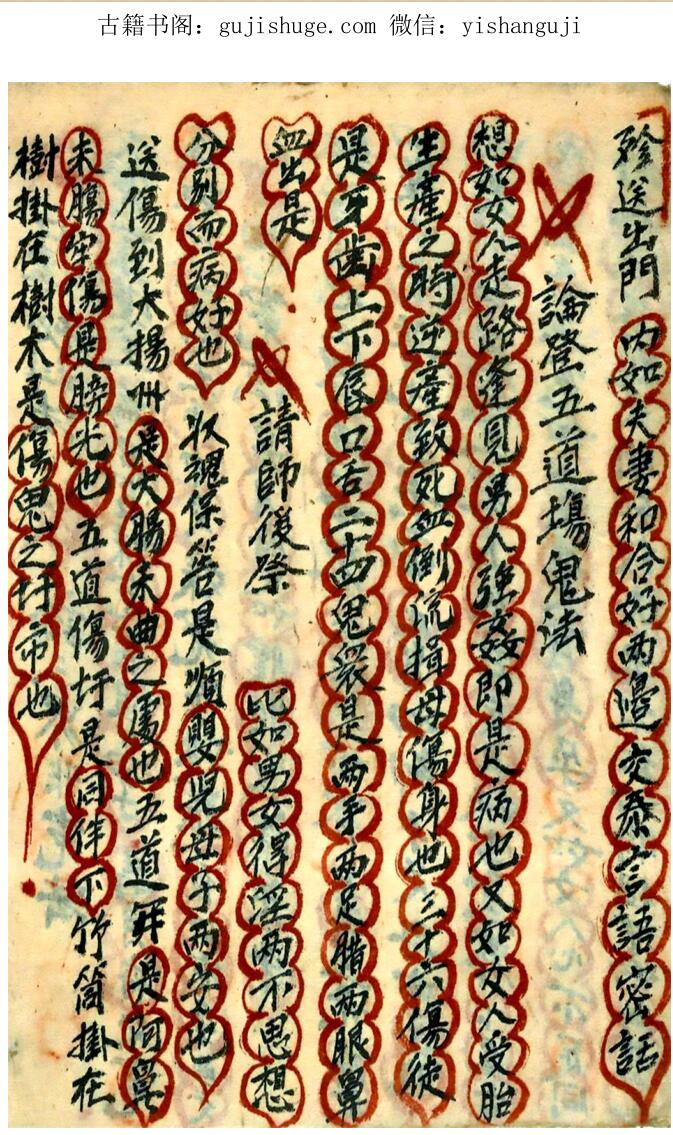 古籍书阁：gujishuge.com 微信：yishanguji
送出門 内如夫妻和合好兩邉交泰言語密話
論登五道場鬼法
想如女人走路逢見男人強姦即是病也又如女人受胎
生產之時逆產致死血倒流損母傷身也三十六傷徒
是牙齒上下唇口舌二十四鬼眾是兩手兩足腊兩眼鼻
血出是 請師後祭 比如男女得淫兩不思想
分别而病好也 收魂保答是順嬰児母子兩安也
送傷到大揚州是大腸未曲之属也五道丼是阿鼻
未腸坐傷是膀光也五道傷圩是同伴下竹筒掛在
樹掛在樹木是傷鬼之圩市也